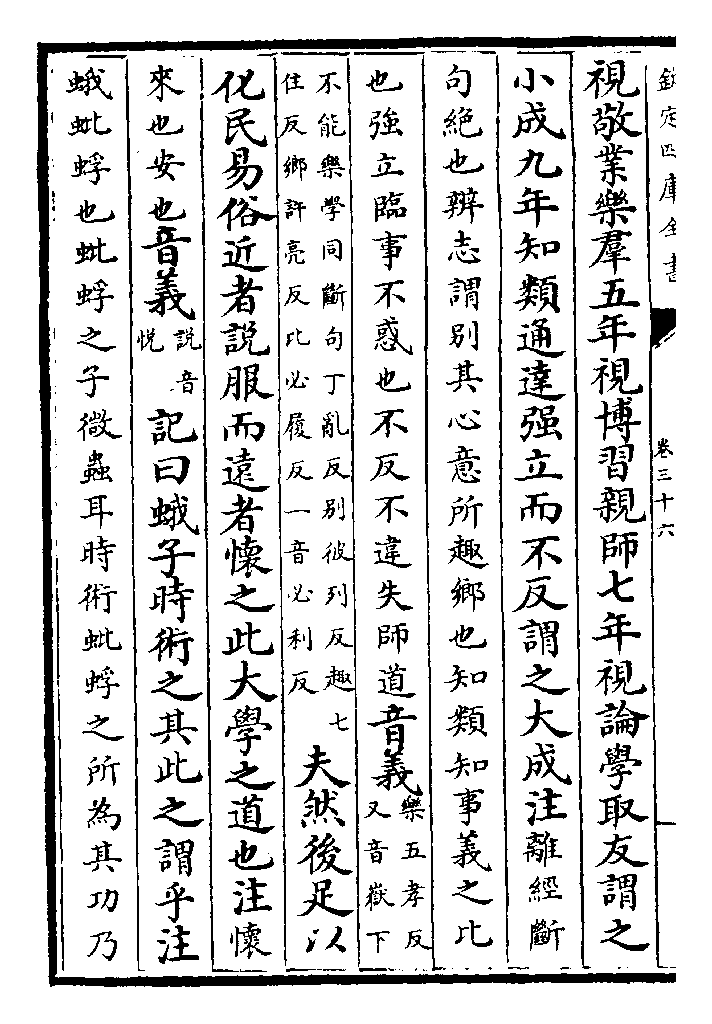 欽定四庫全書
卷三十六
視敬業樂羣五年視博習親師七年視論學取友謂之
小成九年知類通達强立而不反謂之大成注離經斷
句絶也辨志謂别其心意所趣鄉也知類知事義之比
也強立臨事不惑也不反不違失師道音義樂五孝反又音嶽下
不能樂學同斷句丁亂反别彼列反趣七住反鄉許亮反比必履反一音必利反夫然後足以
化民易俗近者說服而遠者懷之此大學之道也注懷
來也安也音義說音悦記曰蛾子時術之其此之謂乎注
蛾蚍蜉也蚍蜉之子微蟲耳時術蚍蜉之所為其功乃